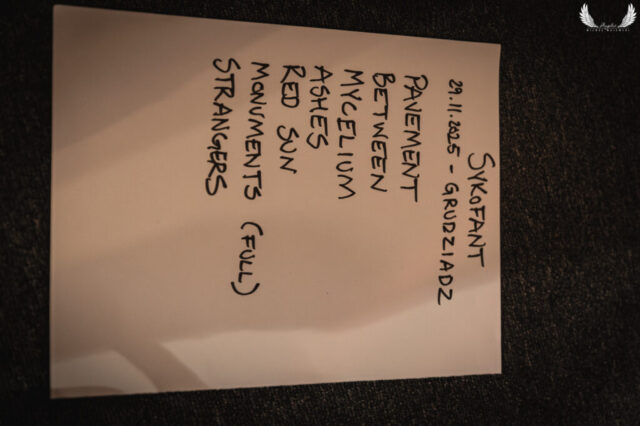 SYKOFANT
29.11.2025 - GRUDZIADZ
PAVEMENT
BETWEEN
MYCELIUM
ASHES
RED SUN
MONUMENTS (FULL)
STRANGERS